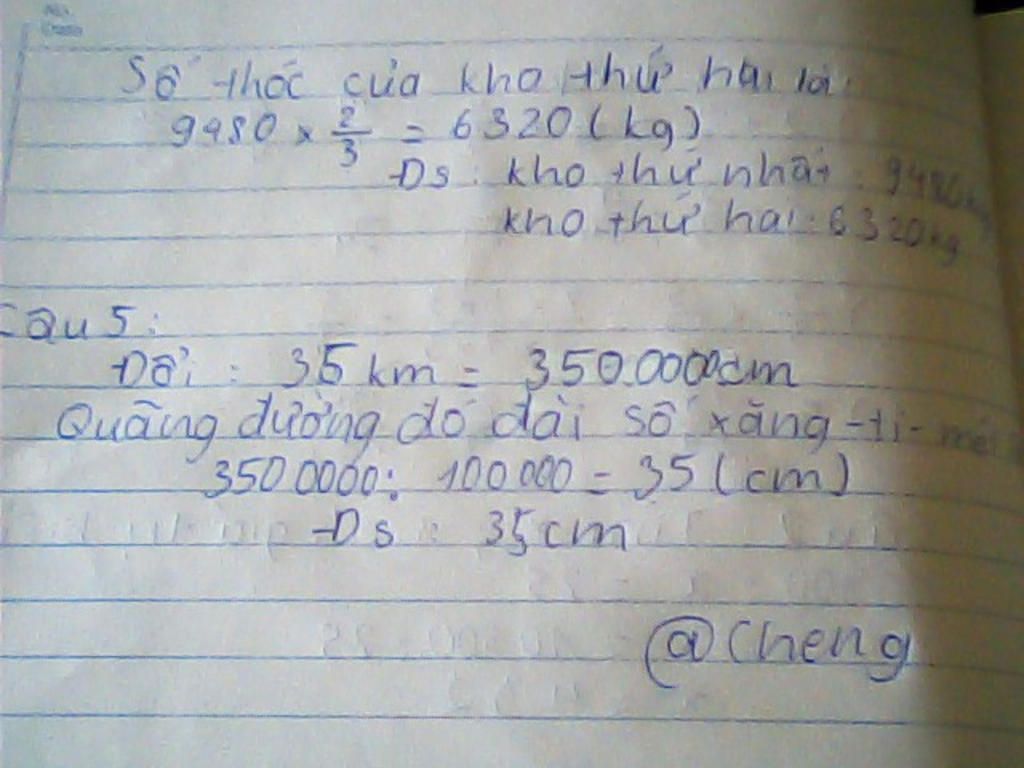 Số thóc của kho thứ hai là:
9480 × 2/3 = 6320 (kg)
Đs: kho thứ nhất: 9480kg
kho thứ hai: 6320kg
Câu 5:
Đổi: 35 km = 3500000cm
Quãng đường đó dài số xăng-ti-mét
3500000: 100000 = 35 (cm)
Đs: 35cm
@Cheng